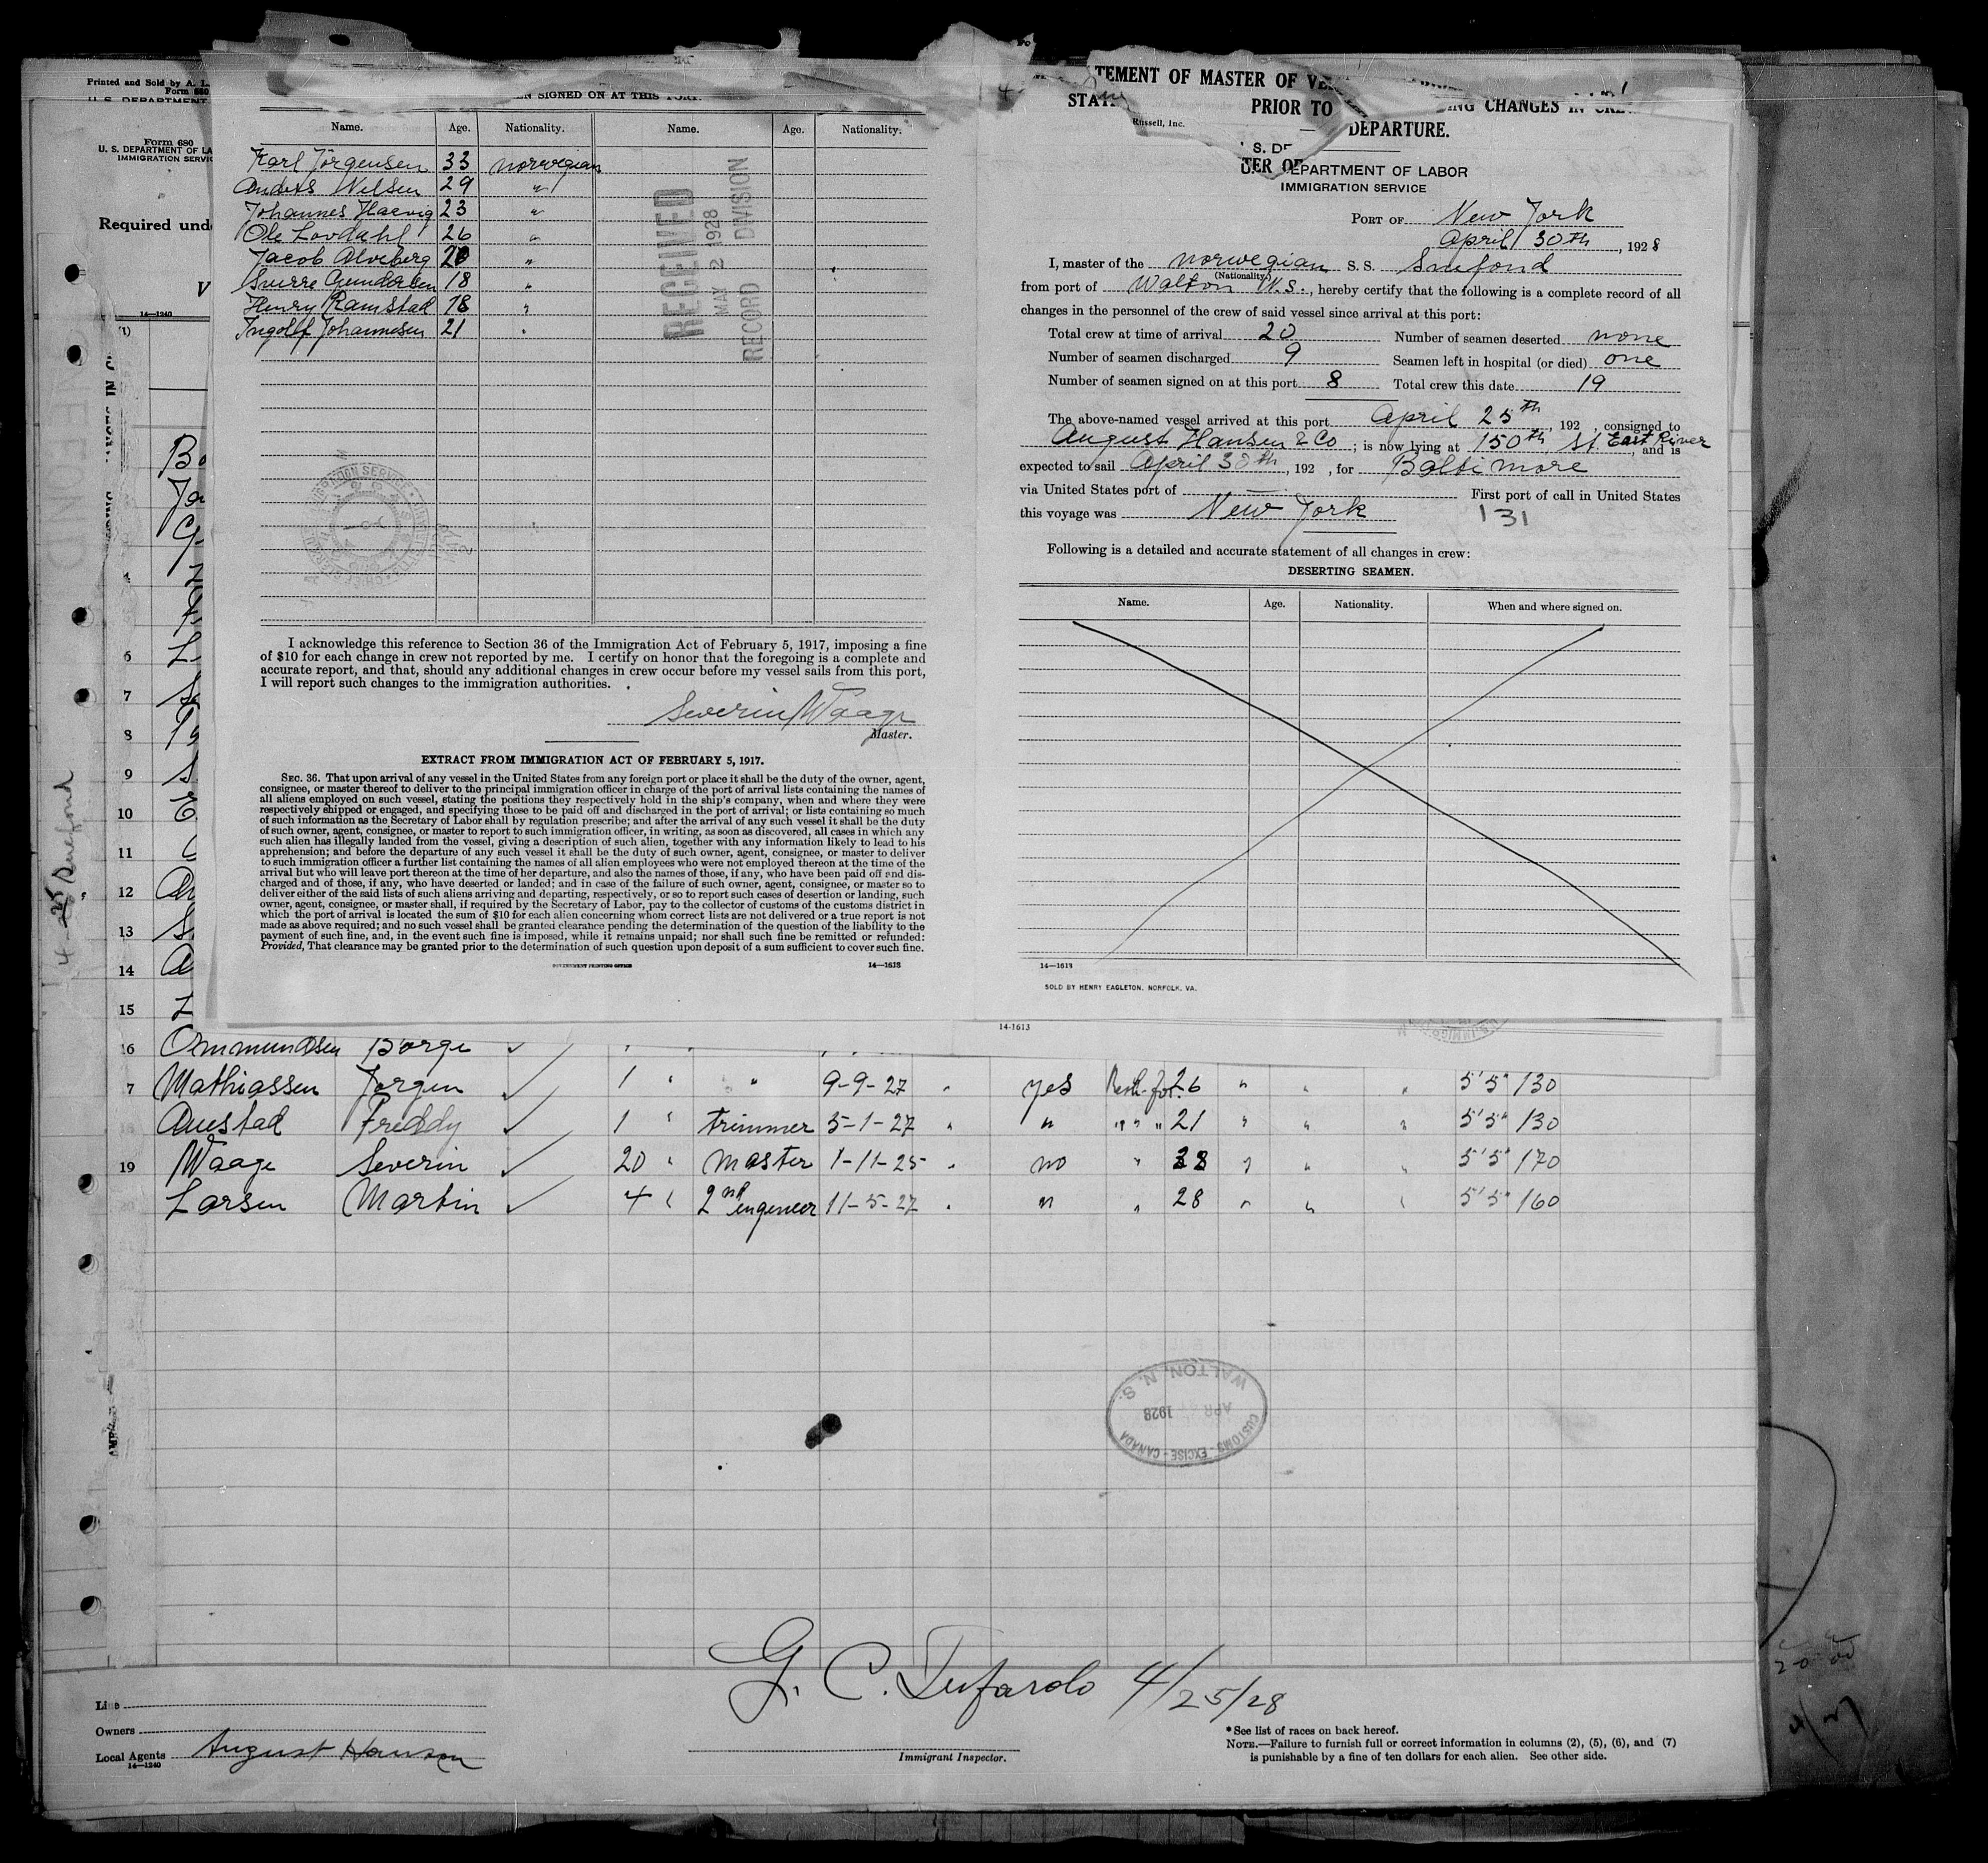 Printed and Sold by A. L.
Form 680
U. S. DEPARTMENT
Form 680
U. S. DEPARTMENT OF LA
IMMIGRATION SERVIC
Required und
V
14—1240
(1)
EN SIGNED ON AT THIS PORT.
Name. Age. Nationality. Name. Age. Nationality.
Karl Jörgensen 33 norwegian
Anders Nilsen 29 "
Johannes Haevig 23 "
Ole Lovdahl 26 "
Jacob Alveberg 20 "
Sverre Gundersen 18 "
Henry Ramstad 18 "
Ingolf Johannesen 21 "
RECEIVED
MAY 2 1928
RECORD DIVISION
I acknowledge this reference to Section 36 of the Immigration Act of February 5, 1917, imposing a fine
of $10 for each change in crew not reported by me. I certify on honor that the foregoing is a complete and
accurate report, and that, should any additional changes in crew occur before my vessel sails from this port,
I will report such changes to the immigration authorities.
Severin Waage
Master.
EXTRACT FROM IMMIGRATION ACT OF FEBRUARY 5, 1917.
SEC. 36. That upon arrival of any vessel in the United States from any foreign port or place it shall be the duty of the owner, agent,
consignee, or master thereof to deliver to the principal immigration officer in charge of the port of arrival lists containing the names of
all aliens employed on such vessel, stating the positions they respectively hold in the ship's company, when and where they were
respectively shipped or engaged, and specifying those to be paid off and discharged in the port of arrival; or lists containing so much
of such information as the Secretary of Labor shall by regulation prescribe; and after the arrival of any such vessel it shall be the duty
of such owner, agent, consignee, or master to report to such immigration officer, in writing, as soon as discovered, all cases in which any
such alien has illegally landed from the vessel, giving a description of such alien, together with any information likely to lead to his
apprehension; and before the departure of any such vessel it shall be the duty of such owner, agent, consignee, or master to deliver
to such immigration officer a further list containing the names of all alien employees who were not employed thereon at the time of the
arrival but who will leave port thereon at the time of her departure, and also the names of those, if any, who have been paid off and dis-
charged and of those, if any, who have deserted or landed; and in case of the failure of such owner, agent, consignee, or master so to
deliver either of the said lists of such aliens arriving and departing, respectively, or so to report such cases of desertion or landing, such
owner, agent, consignee, or master shall, if required by the Secretary of Labor, pay to the collector of customs of the customs district in
which the port of arrival is located the sum of $10 for each alien concerning whom correct lists are not delivered or a true report is not
made as above required; and no such vessel shall be granted clearance pending the determination of the question of the liability to the
payment of such fine, and, in the event such fine is imposed, while it remains unpaid; nor shall such fine be remitted or refunded:
Provided, That clearance may be granted prior to the determination of such question upon deposit of a sum sufficient to cover such fine.
GOVERNMENT PRINTING OFFICE 14—1613
TEMENT OF MASTER OF VE
STAT PRIOR TO ING CHANGES IN CRE
Russell, Inc. DEPARTURE.
S. DE
DEPARTMENT OF LABOR
IMMIGRATION SERVICE
PORT OF New York
April 30th, 1928
I, master of the norwegian S. S. Snefond
(Nationality.)
from port of Walton N.S., hereby certify that the following is a complete record of all
changes in the personnel of the crew of said vessel since arrival at this port:
Total crew at time of arrival 20 Number of seamen deserted none
Number of seamen discharged 9 Seamen left in hospital (or died) one
Number of seamen signed on at this port 8 Total crew this date 19
The above-named vessel arrived at this port April 25th, 192 , consigned to
August Hansen & Co; is now lying at 150th St. East River, and is
expected to sail April 30th, 192 , for Baltimore
via United States port of — First port of call in United States
this voyage was New York 131
Following is a detailed and accurate statement of all changes in crew:
DESERTING SEAMEN.
Name. Age. Nationality. When and where signed on.
14—1613
SOLD BY HENRY EAGLETON, NORFOLK, VA.
14-1613
4-25 Snefond
6
7
8
9
10
11
12
13
14
15
16 Ommundsen Börge
7 Mathiassen Jorgen 1 " " 9-9-27 " yes 26 " " " 5'5" 130
Austad Freddy 1 " trimmer 5-1-27 " " " 21 " " " 5'5" 130
19 Waage Severin 20 " master 1-11-25 " no " 38 " " " 5'5" 170
20 Larsen Martin 4 " 2nd engeneer 11-5-27 " " " 28 " " " 5'5" 160
CUSTOMS - EXCISE - CANADA
APR 1928
WALTON, N. S.
G. C. Tufarolo 4/25/28
Line
Owners
Local Agents August Hansen
14—1240
Immigrant Inspector.
* See list of races on back hereof.
NOTE.—Failure to furnish full or correct information in columns (2), (5), (6), and (7)
is punishable by a fine of ten dollars for each alien. See other side.